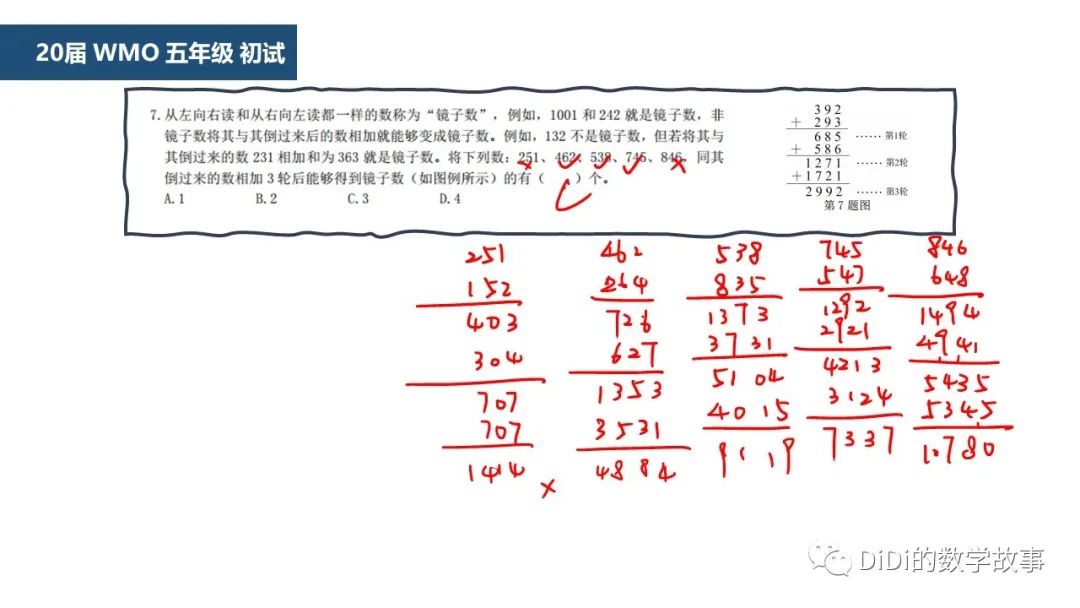 20届 WMO 五年级 初试
7.从左向右读和从右向左读都一样的数称为“镜子数”，例如，1001 和 242 就是镜子数，非
镜子数将其与其倒过来后的数相加就能够变成镜子数。例如，132 不是镜子数，但若将其与
其倒过来的数 231 相加和为 363 就是镜子数。将下列数：251、462、538、745、846，同其
倒过来的数相加 3 轮后能够得到镜子数（如图例所示）的有（ ）个。
A.1 B.2 C.3 D.4
392
+ 293
685 ······ 第1轮
+ 586
1271 ······ 第2轮
+1721
2992 ······ 第3轮
第 7 题图
C
251 462 538 745 846
152 264 835 547 648
403 726 1373 1292 1494
304 627 3731 2921 4941
707 1353 5104 4213 5435
707 3531 4015 3124 5345
1414 × 4884 9119 7337 10780
DiDi的数学故事